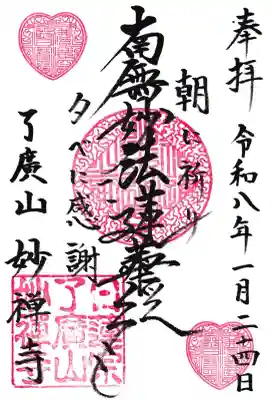 奉拝
令和八年一月二十四日
朝に祈り
南無妙法蓮華経
夕べに感謝
了廣山
妙禅寺